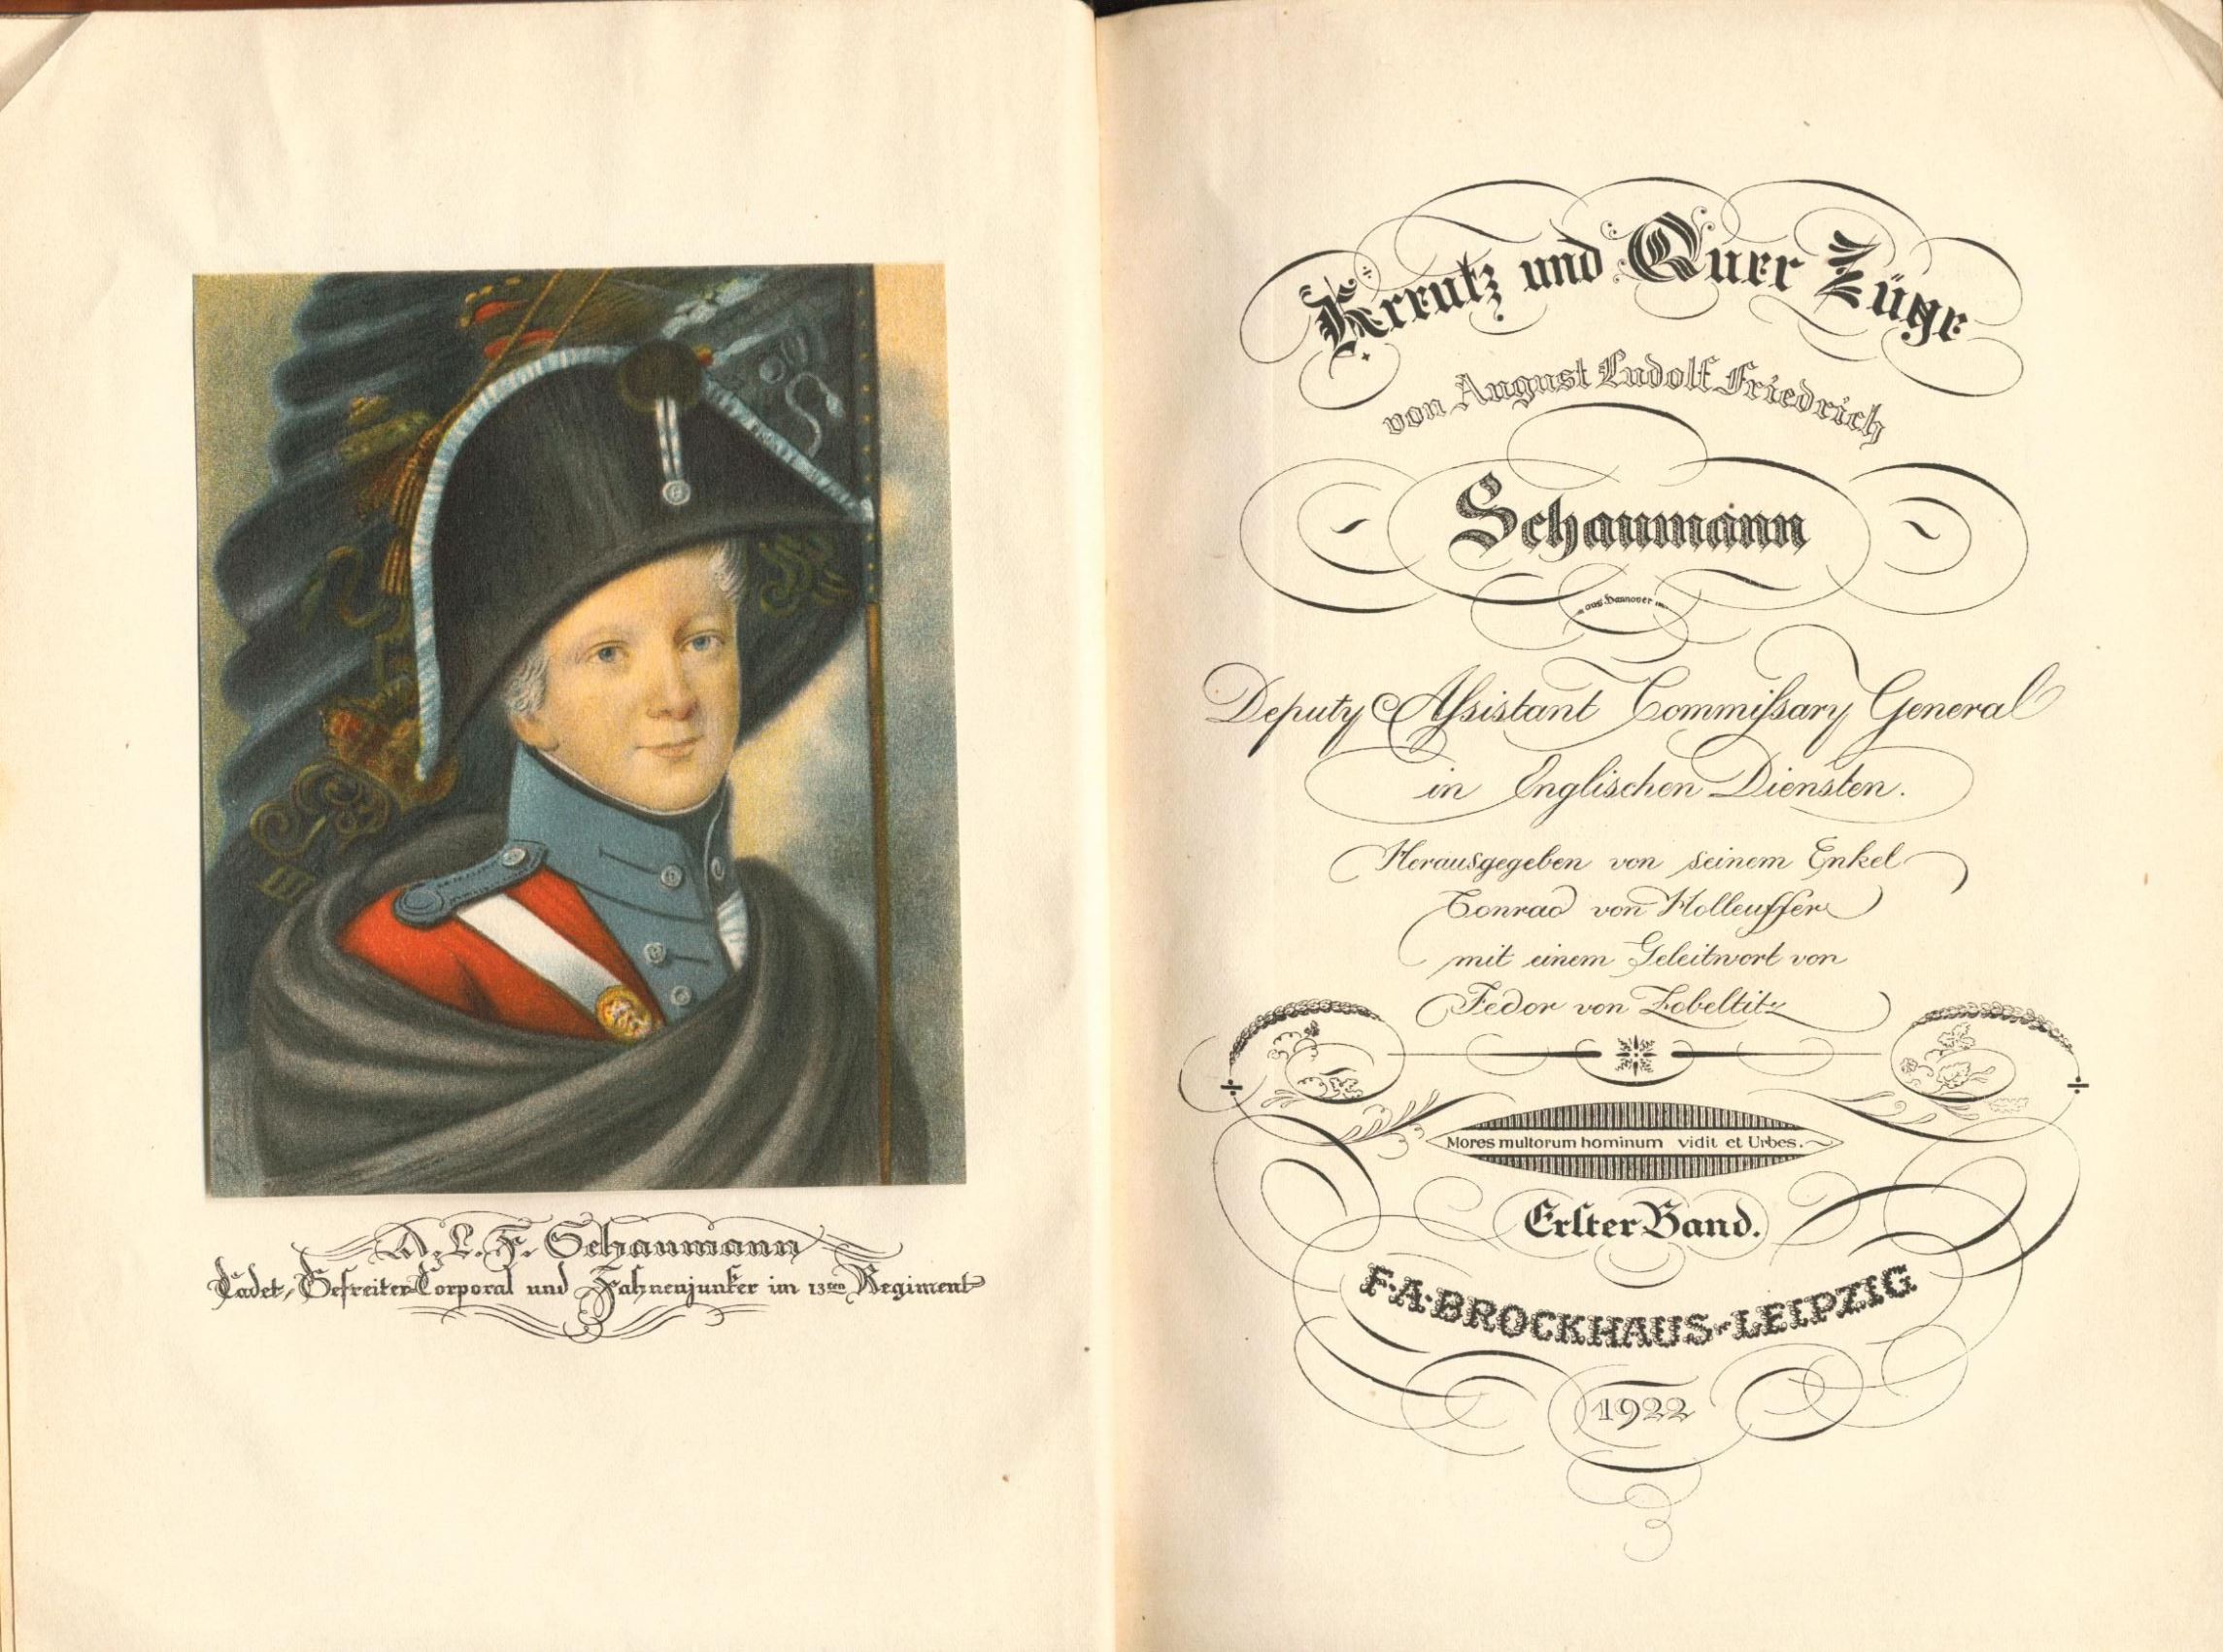 A. L. F. Schaumann
Cadet, Gefreiter Corporal und Fahnenjunker im 13ten Regiment
Kreutz und Quer Züge
von August Ludolf Friedrich
Schaumann
aus Hannover
Deputy Aſsistant Commiſsary General
in Englischen Diensten.
Herausgegeben von seinem Enkel
Conrad von Holleuffer
mit einem Geleitwort von
Fedor von Zobeltitz
Mores multorum hominum vidit et Urbes.
Erſter Band.
F.A.BROCKHAUS-LEIPZIG
1922